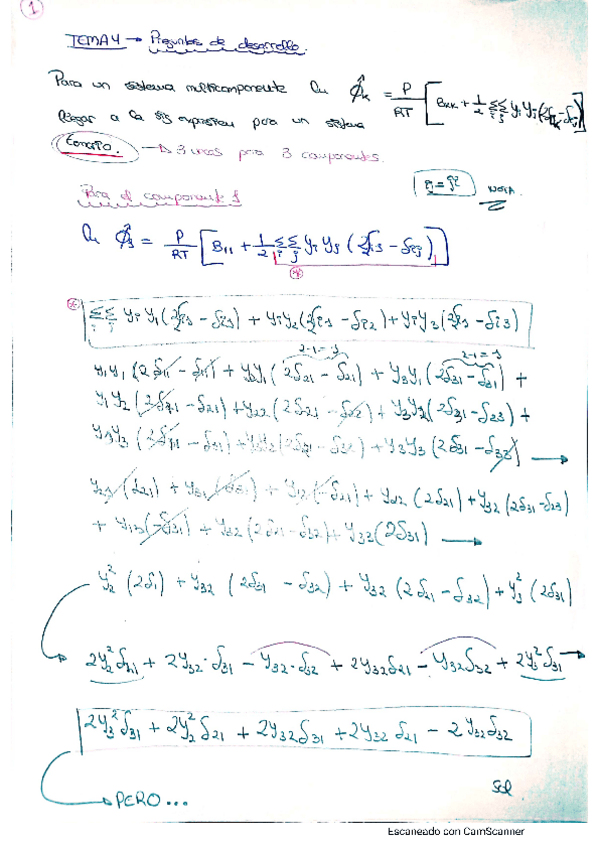 1
TEMA 4 → Preguntas de desarrollo.
Para un sistema multicomponente ln φ̂k = P/RT [Bkk + 1/2 ΣΣ yi yj (2δik - δij)]
llegar a la sig expresion para un sistema
ternario. → 3 veces para 3 componentes.
NOTA
Para el componente 1
ln φ̂1 = P/RT [B11 + 1/2 ΣΣ yi yj (2δi1 - δij)]
*
* ΣΣ yi y1 (2δi1 - δi1) + yi y2 (2δi1 - δi2) + yi y3 (2δi1 - δi3)
2-1=1 2-1=1
y1y1 (2δ11 - δ11) + y2y1 (2δ21 - δ21) + y3y1 (2δ31 - δ31) +
y1y2 (2δ11 - δ21) + y22 (2δ21 - δ22) + y3y2 (2δ31 - δ23) +
y1y3 (2δ11 - δ31) + y2y3 (2δ21 - δ32) + y3y3 (2δ31 - δ33) →
y21 (δ21) + y31 (δ31) + y12 (-δ21) + y22 (2δ21) + y32 (2δ31 - δ23)
+ y13 (-δ31) + y32 (2δ21 - δ32) + y32 (2δ31) →
y2² (2δ1) + y32 (2δ31 - δ32) + y32 (2δ21 - δ32) + y3² (2δ31)
2y2²δ21 + 2y32·δ31 - y32·δ32 + 2y32δ21 - y32δ32 + 2y3²δ31 →
2y3²δ31 + 2y2²δ21 + 2y32δ31 + 2y32δ21 - 2y32δ32
Sol
→ PERO...
Escaneado con CamScanner